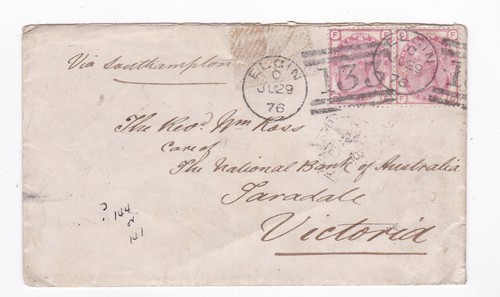 Via Southampton
ELGIN
C
JL 29
76
133
ELGIN
76
The Revd. Wm Ross
Care of
The National Bank of Australia
Taradale
Victoria
? 144
or
141